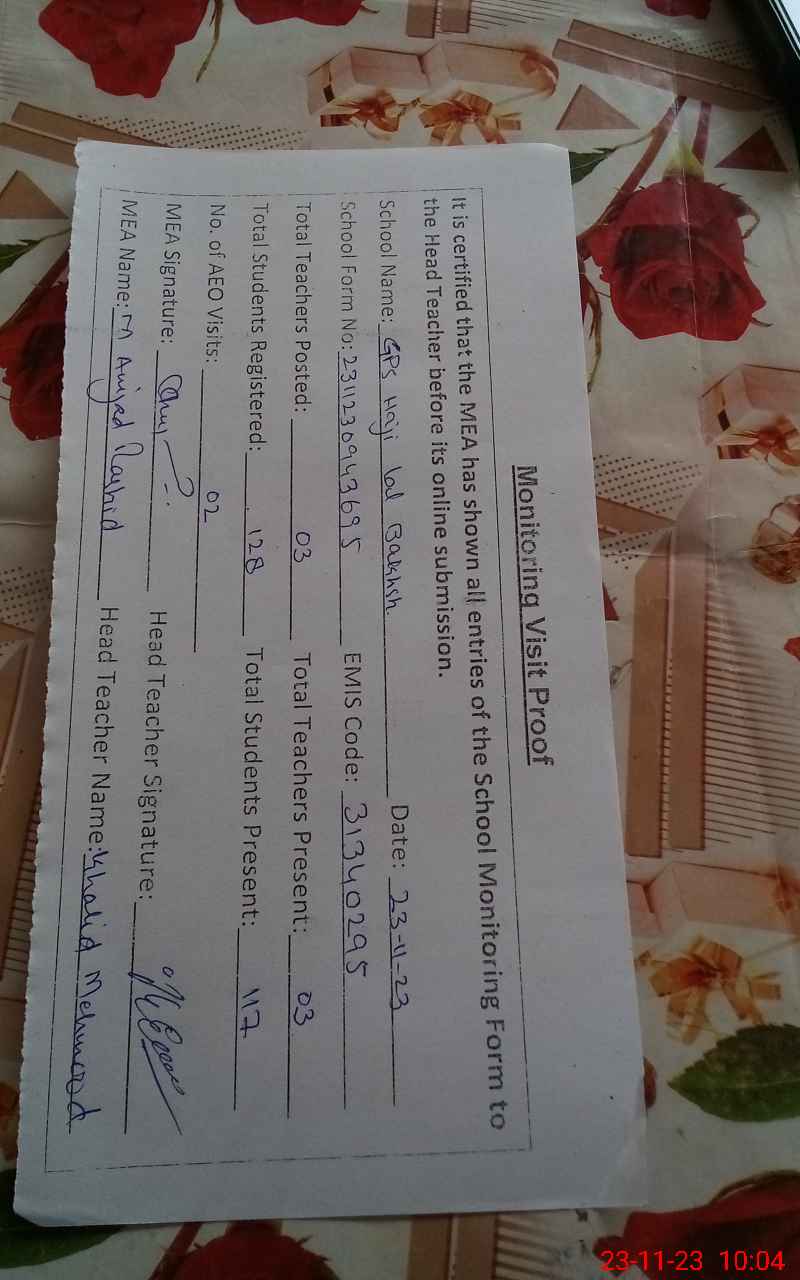 Monitoring Visit Proof
It is certified that the MEA has shown all entries of the School Monitoring Form to
the Head Teacher before its online submission.
School Name: GPS Haji Lal Bakhsh. Date: 23-11-23
School Form No: 2311230943695 EMIS Code: 31340295
Total Teachers Posted: 03 Total Teachers Present: 03
Total Students Registered: 128 Total Students Present: 117
No. of AEO Visits: 02
MEA Signature: Head Teacher Signature:
MEA Name: M Amjad Rashid Head Teacher Name: Khalid Mehmood
23-11-23 10:04